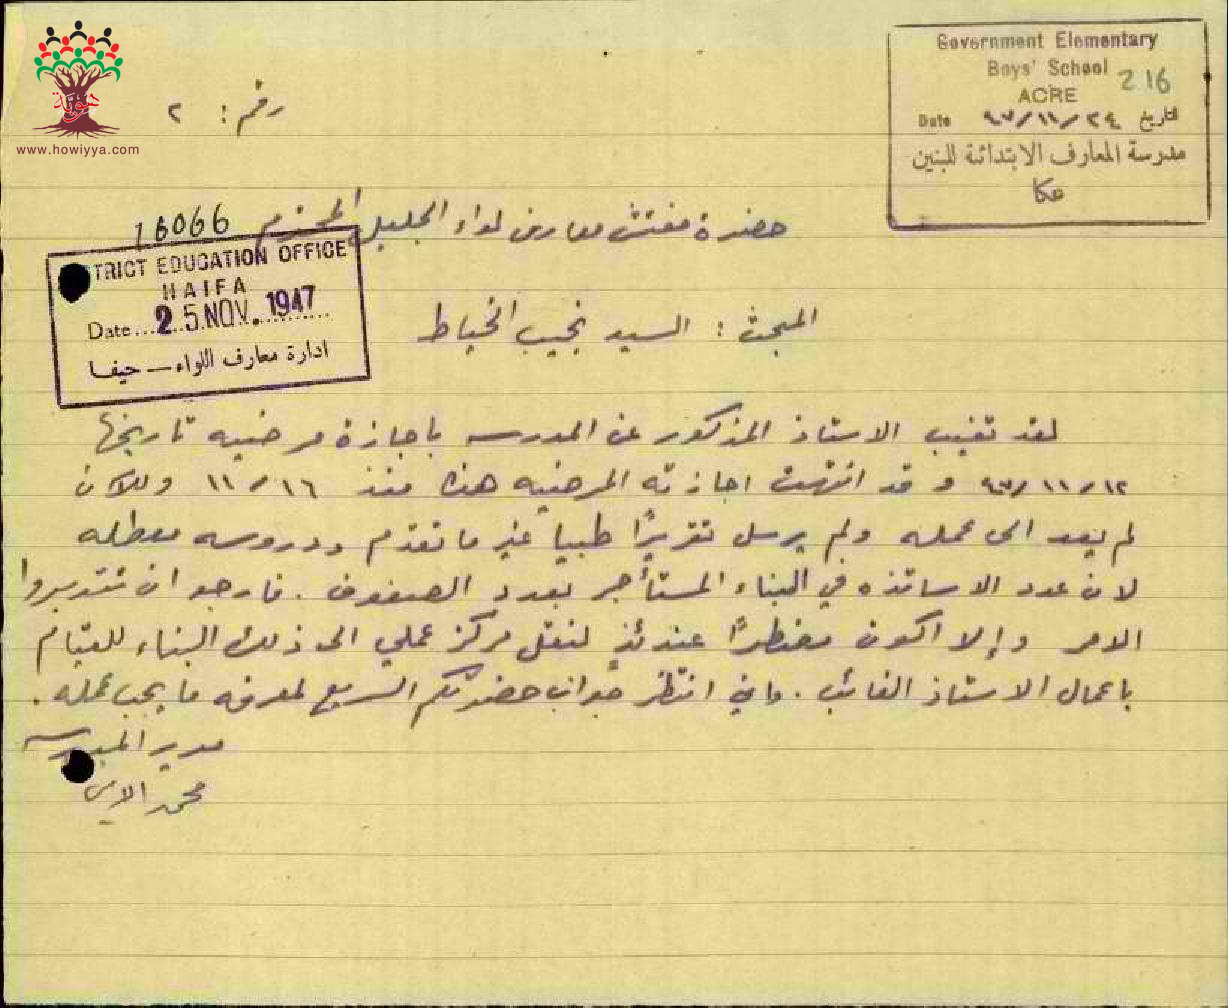 هوية
www.howiyya.com
Government Elementary
Boys' School
216
ACRE
Date ٤٧/١١/٢٤ التاريخ
مدرسة المعارف الابتدائية للبنين
عكا
رقم : ٢
حضرة مفتش معارف لواء الجليل المحترم
16066
DISTRICT EDUCATION OFFICE
HAIFA
Date...25 NOV. 1947
ادارة معارف اللواء — حيفا
المبحث : السيد نجيب الخياط
لقد تغيب الاستاذ المذكور عن المدرسه باجازة مرضيه تاريخها
٤٧/١١/١٢ و قد انتهت اجازته المرضيه هذه منذ ١١/١٦ وللآن
لم يعد الى عمله ولم يرسل تقريرًا طبيا غير ما تقدم ودروسه معطله
لان عدد الاساتذه في البناء المستأجر بعدد الصفوف . فارجو ان تتدبروا
الامر وإلا اكون مضطرًا عندئذٍ لنقل مركز عملي الى ذلك البناء للقيام
باعمال الاستاذ الغائب . واني انتظر جواب حضرتكم السريع لمعرفه ما يجب عمله .
مدير المدرسه
محمد